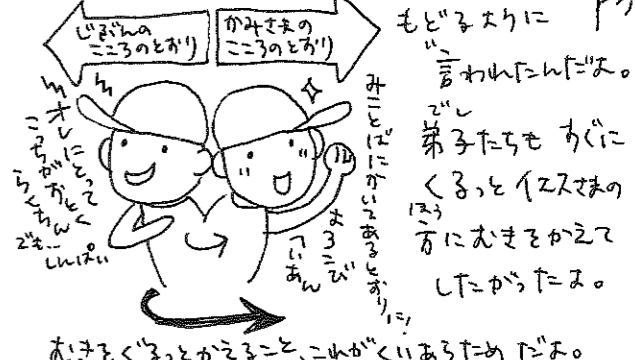 じぶんの
こころのとおり
かみさまの
こころのとおり
オレにとって
こっちがおとく
らくちん
でも… しんぱい
みことばにかいてあるとおりに!
よろこび
へいあん
もどるように
言われたんだよ。
でし
弟子たちも すぐに
くるっと イエスさまの
ほう
方にむきをかえて
したがったよ。
むきをぐるっとかえること、これがくいあらためだよ。